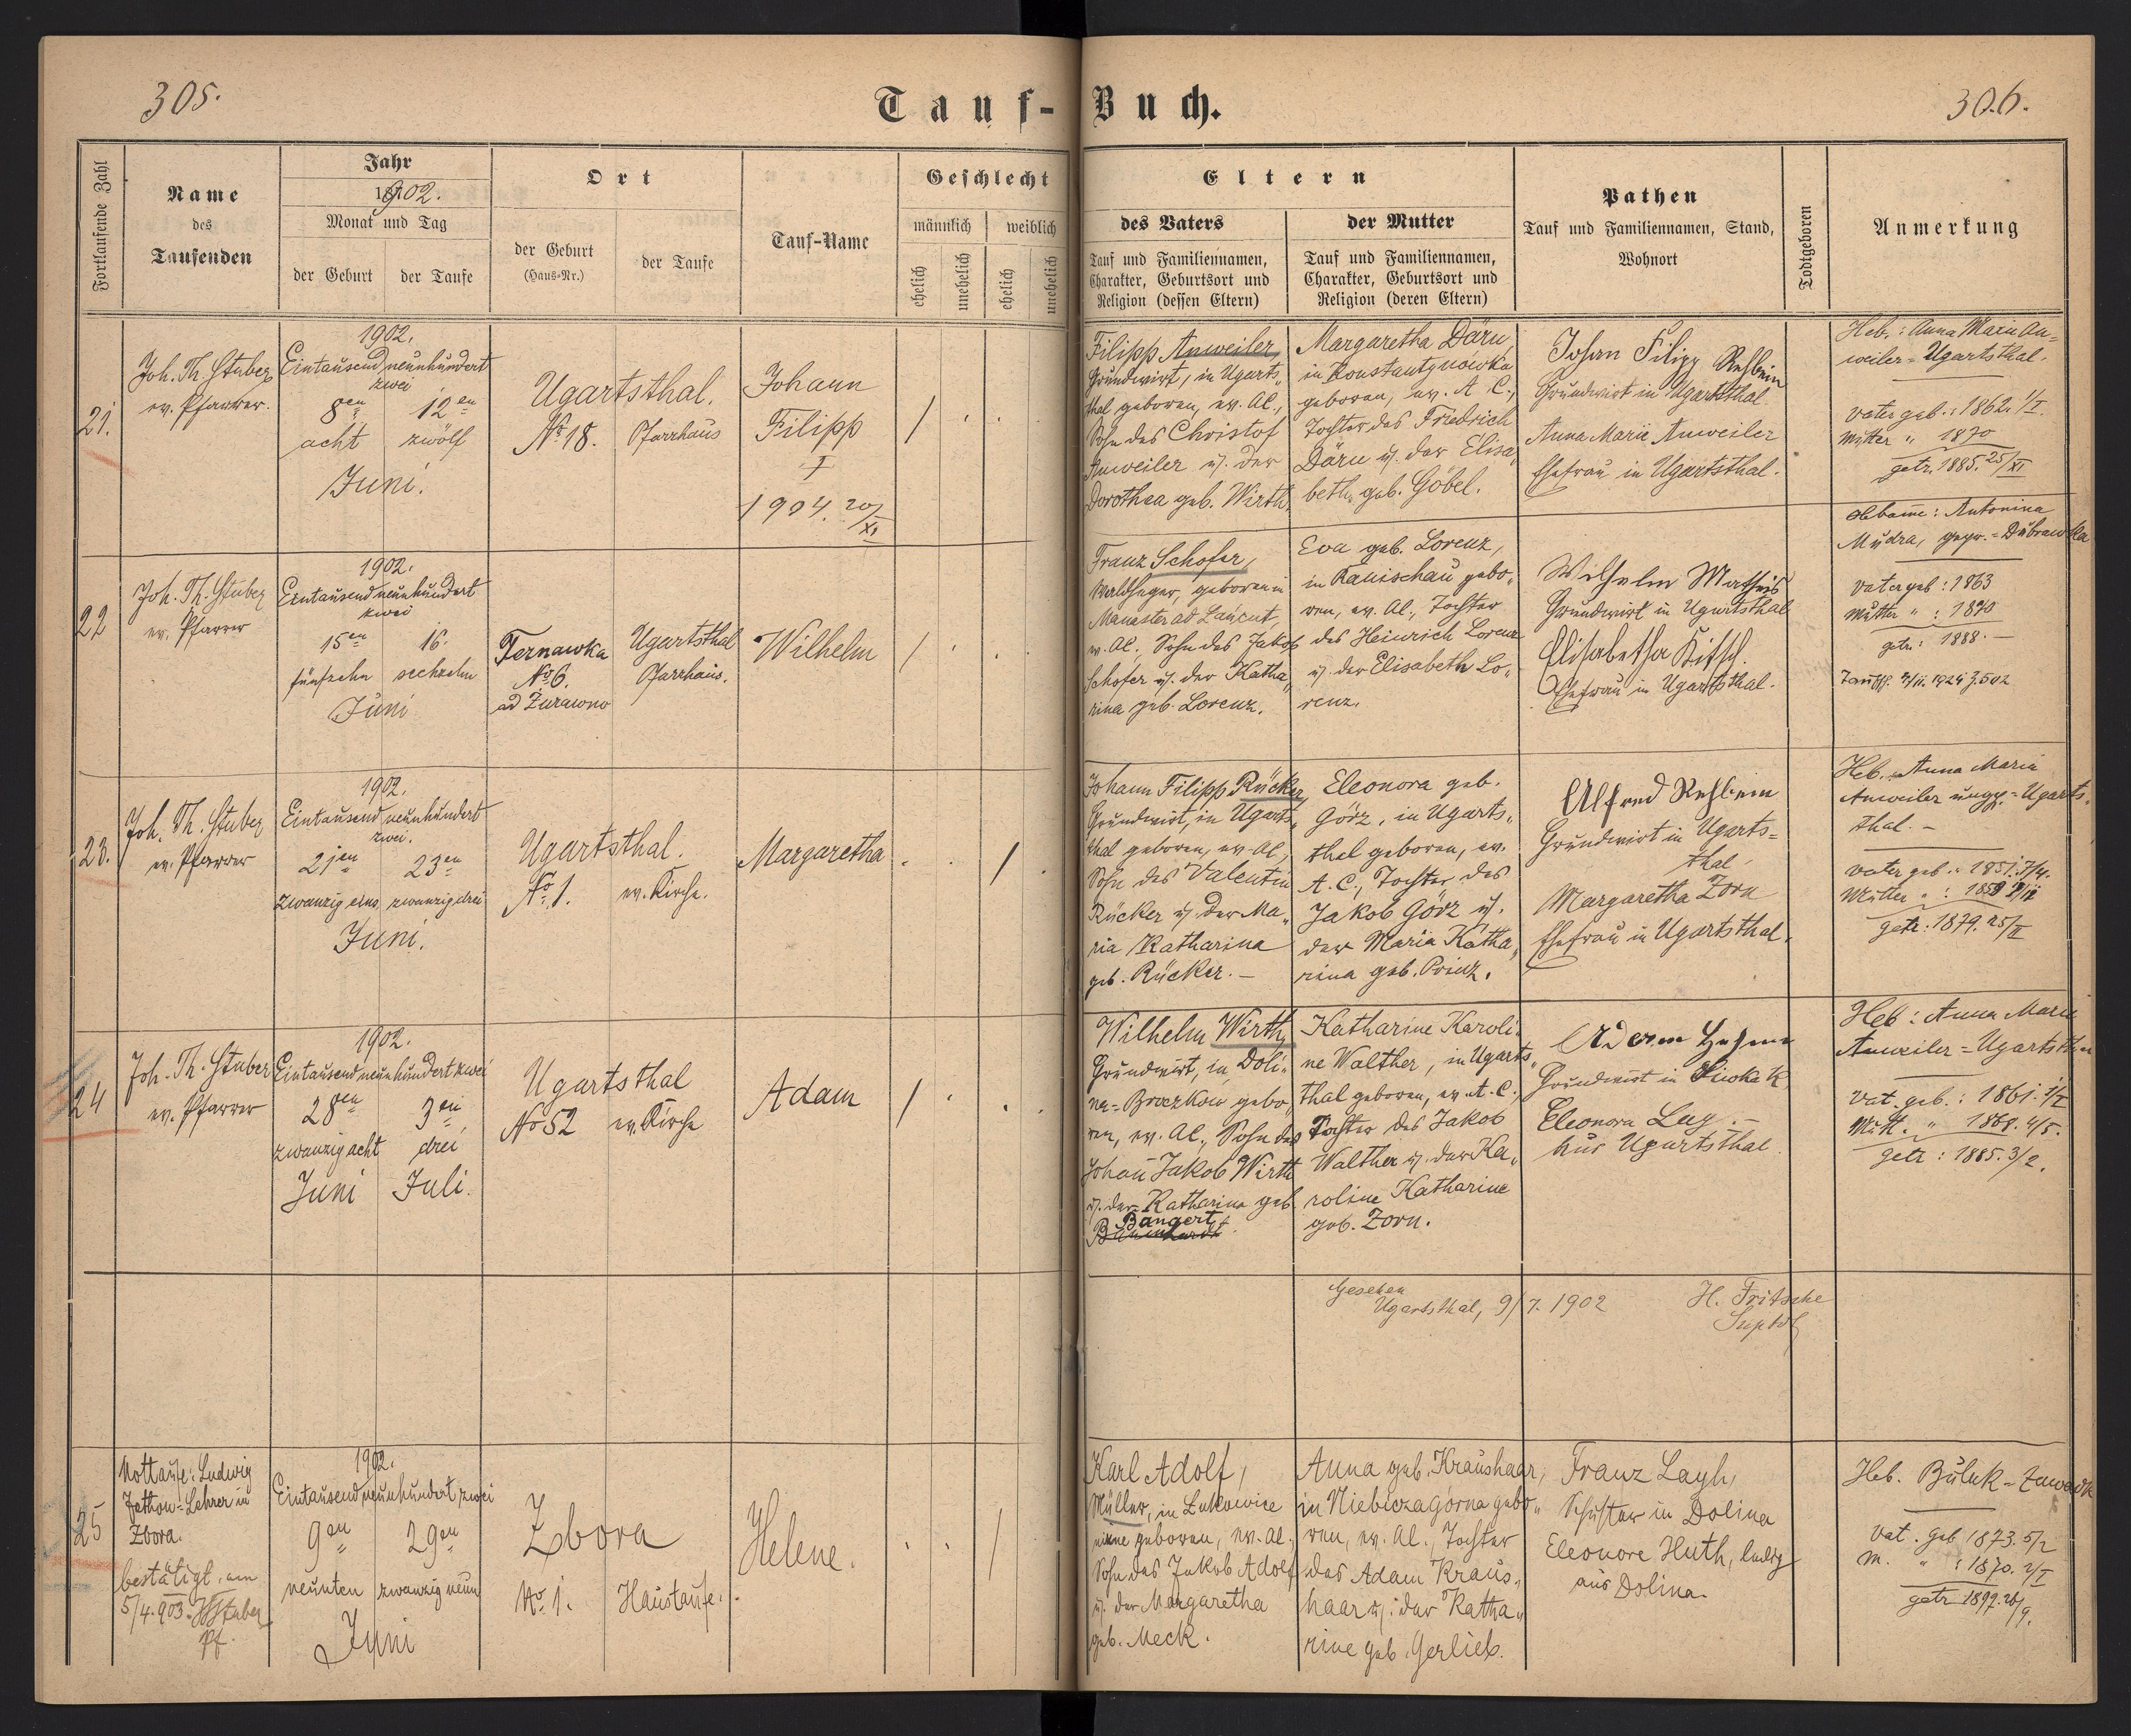 305.
Tauf-Buch.
306.
Fortlaufende Zahl
Name
des
Taufenden
Jahr
1902.
Monat und Tag
der Geburt
der Taufe
Ort
der Geburt
(Haus-Nr.)
der Taufe
Tauf-Name
Geschlecht
männlich
weiblich
ehelich
unehelich
ehelich
unehelich
Eltern
des Vaters
Tauf und Familiennamen,
Charakter, Geburtsort und
Religion (dessen Eltern)
der Mutter
Tauf und Familiennamen,
Charakter, Geburtsort und
Religion (deren Eltern)
Pathen
Tauf und Familiennamen, Stand,
Wohnort
Todtgeboren
Anmerkung
21.
Joh. Th. Stuber
ev. Pfarrer.
1902.
Eintausend neunhundert
zwei
8en 12en
acht zwölf
Juni.
Ugartsthal.
No 18. Pfarrhaus
Johann
Filipp
†
1904. 20/XI
Filipp Anweiler,
Grundwirt, in Ugarts„
thal geboren, ev. AC.,
Sohn des Christof
Anweiler u. der
Dorothea geb. Wirth
Margaretha Däru,
in Konstantynówka
geboren, ev. A. C.,
Tochter des Friedrich
Däru u. der Elisa„
beth, geb. Göbel.
Johan Filipp Rehbein
Grundwirt in Ugartsthal
Anna Marie Anweiler
Ehefrau in Ugartsthal.
Heb.: Anna Maria An=
weiler = Ugartsthal.
Vater geb.: 1862. 1/I.
Mutter „ 1870
getr. 1885. 25/XI
22
Joh. Th. Stuber
ev. Pfarrer
1902.
Eintausend neunhundert
zwei
15en 16.
fünfzehn sechzehn
Juni
Ternawka
No 6.
ad Żurawno
Ugartsthal
Pfarrhaus.
Wilhelm
Franz Schofer,
Waldheger, geboren in
Manaster ad Łańcut,
ev. AC., Sohn des Jakob
Schofer u. der Katha„
rina geb. Lorenz.
Eva geb. Lorenz,
in Ranischau gebo„
ren, ev. AC., Tochter
des Heinrich Lorenz
u. der Elisabeth Lo„
renz.
Wilhelm Matheis
Grundwirt in Ugartsthal
Elisabetha Kitsch.
Ehefrau in Ugartsthal.
Hebame: Antonina
Mudra, gepr. = Dubrawka
Vater geb: 1863
Mutter „ : 1870
getr: 1888. —
23.
Joh. Th. Stuber
ev. Pfarrer
1902.
Eintausend neunhundert
zwei.
21en 23en
zwanzig eins zwanzig drei
Juni.
Ugartsthal.
No 1. ev. Kirche.
Margaretha
Johann Filipp Rücker
Grundwirt, in Ugarts„
thal geboren, ev. AC,
Sohn des Valentin
Rücker u. der Ma„
ria Katharina
geb. Rücker. —
Eleonora geb.
Görz, in Ugarts„
thal geboren, ev.
A. C., Tochter des
Jakob Görz u.
der Maria Katha„
rina geb. Prinz.
Alfred Rehbein
Grundwirt in Ugarts=
thal.
Margaretha Zorn
Ehefrau in Ugartsthal.
Heb. Anna Maria
Anweiler ungpr. = Ugarts„
thal. —
Vater geb.: 1851.
Mutter „ : 1859
getr: 1879. 25/II
24
Joh. Th. Stuber
ev. Pfarrer
1902.
Eintausend neunhundert zwei
28en 3en
zwanzig acht drei
Juni Juli.
Ugartsthal
No 52 ev. Kirche
Adam
Wilhelm Wirth,
Grundwirt, in Doli„
na=Broczkow gebo„
ren, ev. AC., Sohn des
Johan Jakob Wirth
u. der Katharina geb
Bangert
Katharine Karoli„
ne Walther, in Ugarts„
thal geboren, ev. A. C.,
Tochter des Jakob
Walther u. der Ka„
roline Katharine
geb. Zorn.
Adam
Grundwirt in
Eleonora Ley. —
aus Ugartsthal
Heb: Anna Marie
Anweiler = Ugartsthal
Vat. geb.: 1861. 1/I
Mutt. „ 1868. 4/5.
getr: 1885. 3/2.
Gesehen
Ugartsthal, 9/7. 1902 H. Fritsche
Suptdt
25
Nottaufe: Ludwig
Jethon = Lehrer in
Zbora.
bestätigt, am
5/4. 903. Stuber
Pf.
1902.
Eintausend neunhundert zwei
9en 29en
neunten zwanzig neun
Juni
Zbora
No. 1. Haustaufe.
Helene.
Karl Adolf,
Müller, in Łukowice
geboren, ev. AC.
Sohn des Jakob Adolf
u. der Margaretha
geb. Meck.
Anna geb. Kraushaar,
in Niebieza Górna gebo„
ren, ev. AC., Tochter
des Adam Kraus„
haar u. der Katha„
rine geb. Gerlieb.
Franz Layh,
Schuster in Dolina
Eleonore Huth, ledig
aus Dolina.
Heb. Buluk = Zawadk
Vat. geb 1873. 5/2
M. „ : 1870. 2/I
getr 1897. 26/9.